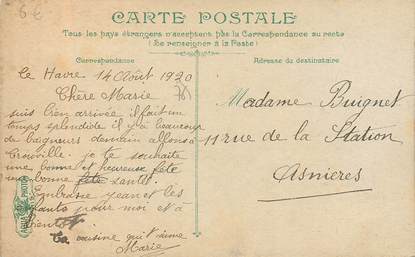 6€
CARTE POSTALE
Tous les pays étrangers n'acceptent pas la Correspondance au recto
(Se renseigner à la Poste)
Correspondance
Le Havre 14 Août 1920
Chère Marie
suis bien arrivée il fait un
temps splendide il y a beaucoup
de baigneurs demain allons à
Trouville. je te souhaite
une bonne et heureuse fête
une bonne fête santé
embrasse Jean et les
pour moi et à
bientôt
Ta cousine qui t'aime
Marie
Adresse du destinataire
Madame Buignet
11 rue de la Station
Asnieres